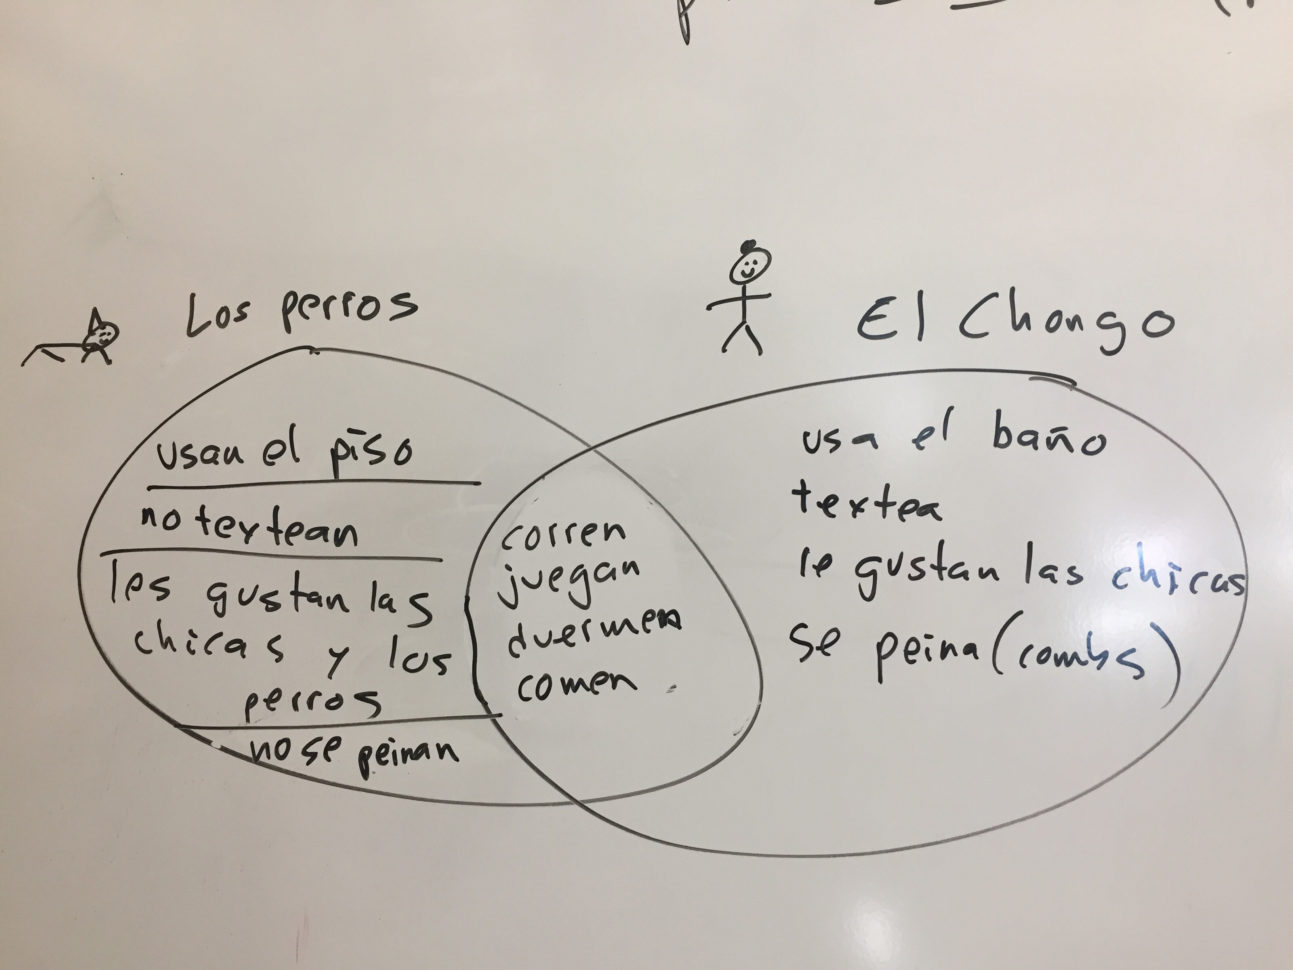 Los perros
El Chongo
usan el piso
no textean
les gustan las
chicas y los
perros
no se peinan
corren
juegan
duermen
comen
usa el baño
textea
le gustan las chicas
se peina (combs)